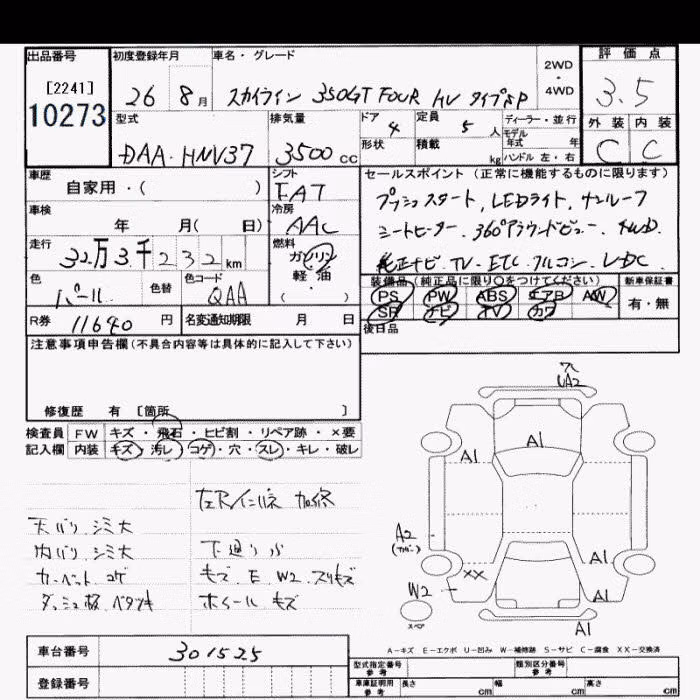 出品番号
[2241]
10273
初度登録年月
26 8月
車名・グレード
スカイライン 350GT FOUR HV タイプSP
2WD
・
4WD
評価点
3.5
外装 内装
C C
型式
DAA-HNV37
排気量
3500cc
ドア 4
形状
定員 5人
積載 kg
ディーラー・並行
モデル年式 年
ハンドル 左・右
車歴
自家用・( )
シフト
FAT
車検
年 月( 日)
冷房
AAC
走行
32万3千232km
燃料
ガソリン
軽油
( )
色
パール
色替
色コード
QAA
R券 11640円
名変通知期限 月 日
セールスポイント(正常に機能するものに限ります)
プッシュスタート, LEDライト, サンルーフ
シートヒーター, 360°アラウンドビュー, 4WD
純正ナビ, TV, ETC, アルコン, VDC
装備品(純正品に限り○をつけてください)
PS PW ABS エアB AW
SR ナビ TV カワ
新車保証書
有・無
後日品
注意事項申告欄(不具合内容等は具体的に記入して下さい)
修復歴 有 [箇所 ]
検査員記入欄
FW キズ・飛石・ヒビ割・リペア跡・×要
内装 キズ・汚レ・コゲ・穴・スレ・キレ・破レ
天バリ シミ大
内バリ シミ大
カーペット コゲ
ダッシュ板 ベタツキ
下廻り サ
キズ E W2 スリキズ
ホイール キズ
UA2
A1
A1
A2
(カバー)
A1
XX
W2
A1
スペア
A1
A-キズ E-エクボ U-凹み W-補修跡 S-サビ C-腐食 XX-交換済
車台番号 301525
登録番号
型式指定番号 参考
類別区分番号 参考
車庫証明用 参考 長さ cm 幅 cm 高さ cm